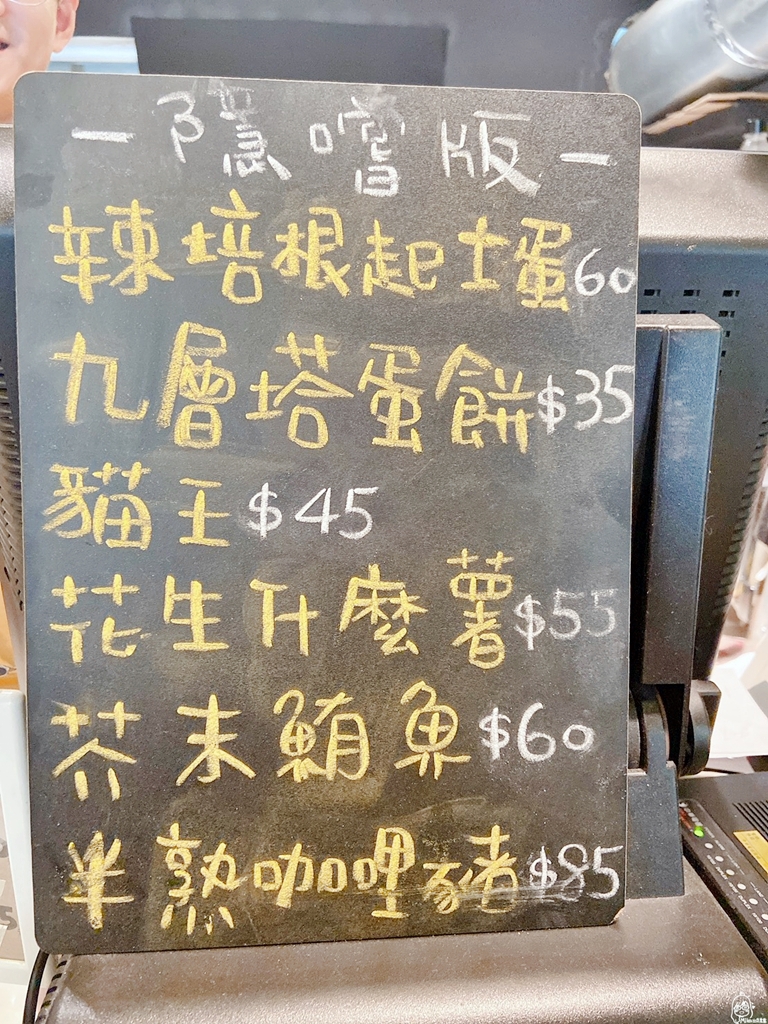 －隱嚐版－
辣培根起士蛋60
九層塔蛋餅$35
貓王$45
花生什麼薯$55
芥末鮪魚$60
半熟咖哩豬$85